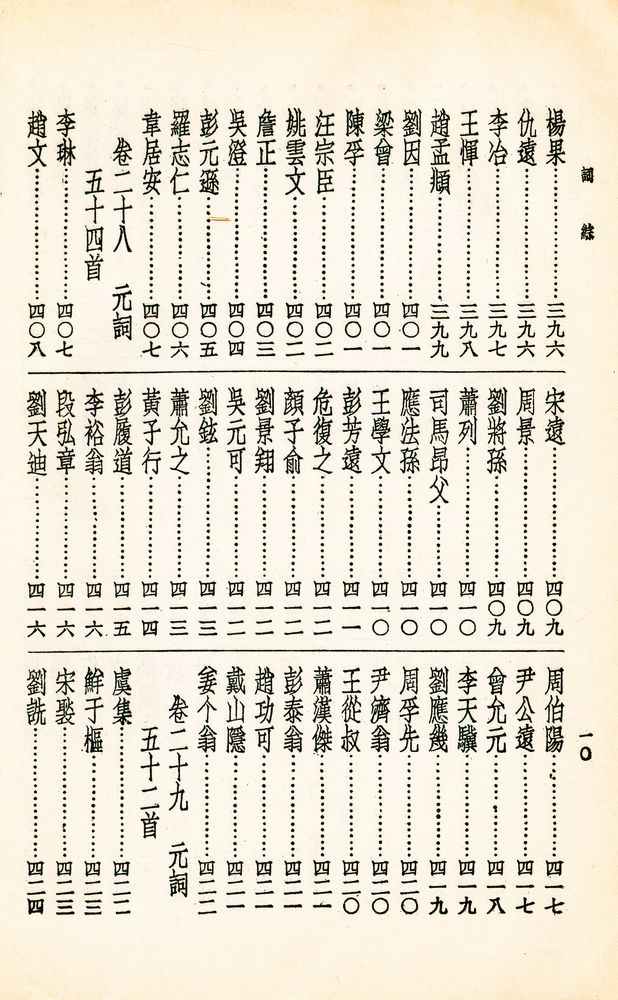 詞綜
一〇
楊果…………三九六
仇遠…………三九六
李冶…………三九七
王惲…………三九八
趙孟頫…………三九九
劉因…………四〇一
梁曾…………四〇一
陳孚…………四〇一
汪宗臣…………四〇二
姚雲文…………四〇二
詹正…………四〇三
吳澄…………四〇四
彭元遜…………四〇五
羅志仁…………四〇六
韋居安…………四〇七
卷二十八 元詞
五十四首
李琳…………四〇七
趙文…………四〇八
宋遠…………四〇九
周景…………四〇九
劉將孫…………四〇九
蕭列…………四一〇
司馬昂父…………四一〇
應法孫…………四一〇
王學文…………四一〇
彭芳遠…………四一一
危復之…………四一二
顏子俞…………四一二
劉景翔…………四一二
吳元可…………四一二
劉鉉…………四一三
蕭允之…………四一三
黃子行…………四一四
彭履道…………四一五
李裕翁…………四一六
段弘章…………四一六
劉天迪…………四一六
周伯陽…………四一七
尹公遠…………四一七
曾允元…………四一八
李天驥…………四一九
劉應幾…………四一九
周孚先…………四二〇
尹濟翁…………四二〇
王從叔…………四二〇
蕭漢傑…………四二一
彭泰翁…………四二一
趙功可…………四二一
戴山隱…………四二一
姜个翁…………四二二
卷二十九 元詞
五十二首
虞集…………四二二
鮮于樞…………四二三
宋褧…………四二三
劉詵…………四二四